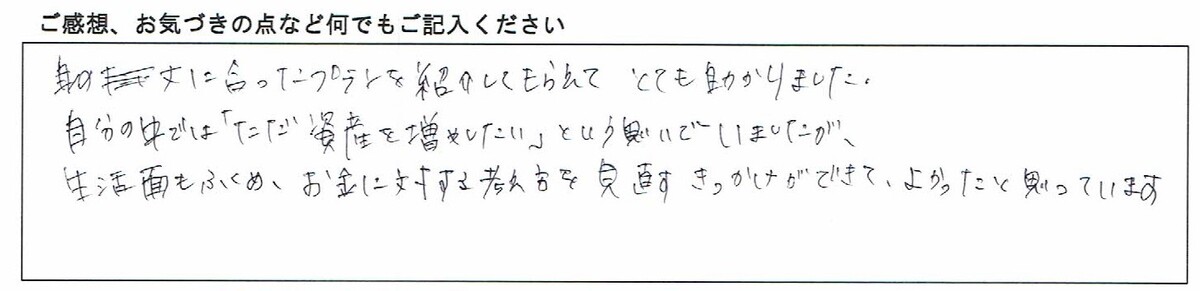 ご感想、お気づきの点など何でもご記入ください
身の丈に合ったプランを紹介してもらえて とても助かりました。
自分の中では「ただ 資産を増やしたい」という思いでいましたが、
生活面もふくめ、お金に対する考え方を見直すきっかけができて、よかったと思っています